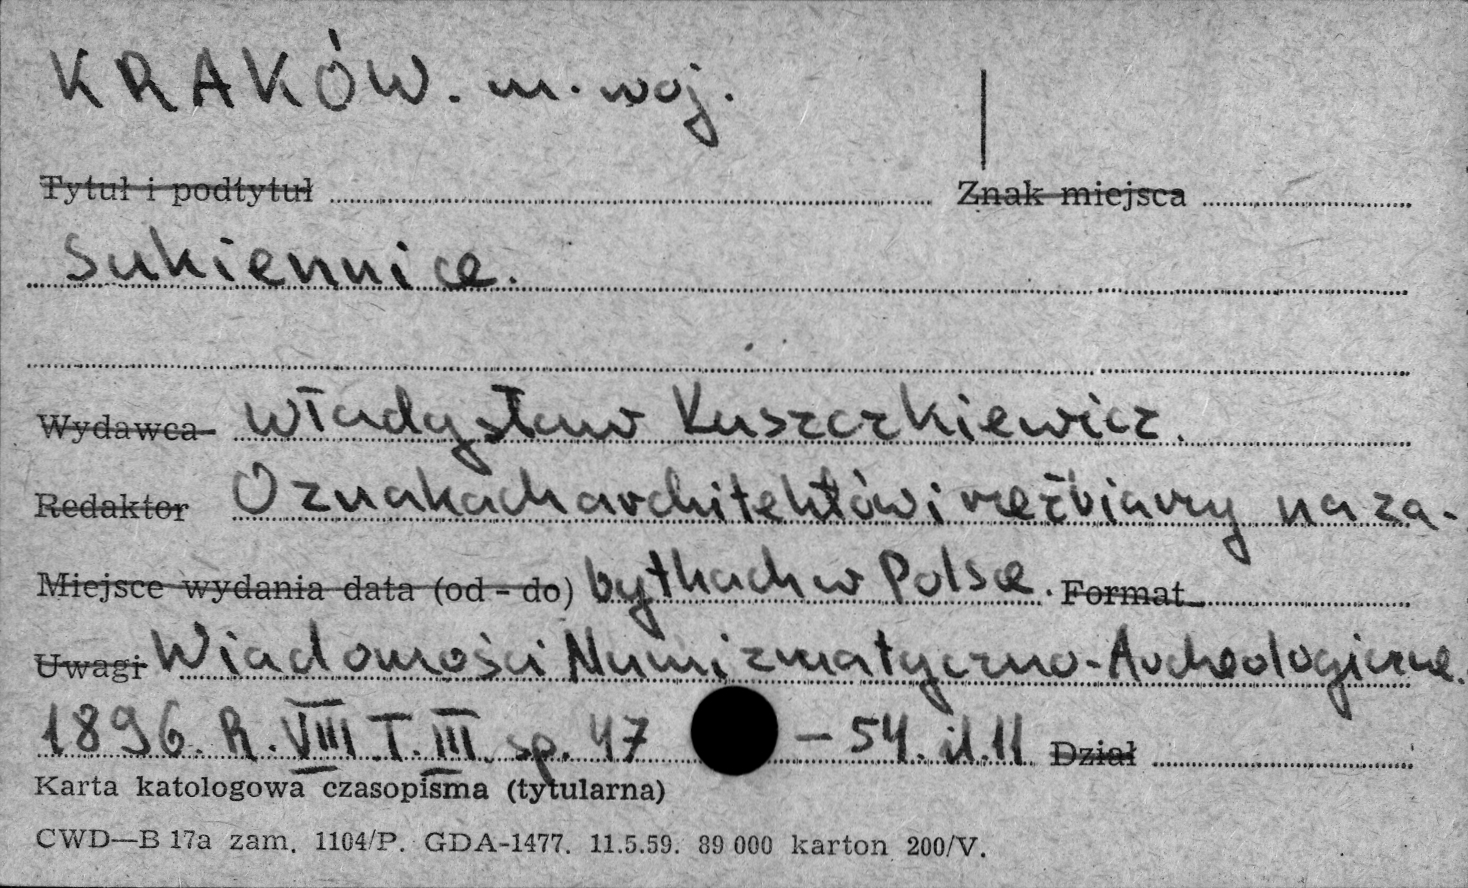 KRAKÓW. m. woj.
Tytuł i podtytuł Znak miejsca
Sukiennice.
Wydawca Władysław Łuszczkiewicz.
Redaktor O znakach architektów i rzeźbiarzy na za-
Miejsce wydania data (od - do) bytkach w Polsce. Format
Uwagi Wiadomości Numizmatyczno-Archeologiczne.
1896. R. VIII T. III. sp. 47 – 54. il. 11 Dział
Karta katologowa czasopisma (tytularna)
CWD—B 17a zam. 1104/P. GDA-1477. 11.5.59. 89 000 karton 200/V.